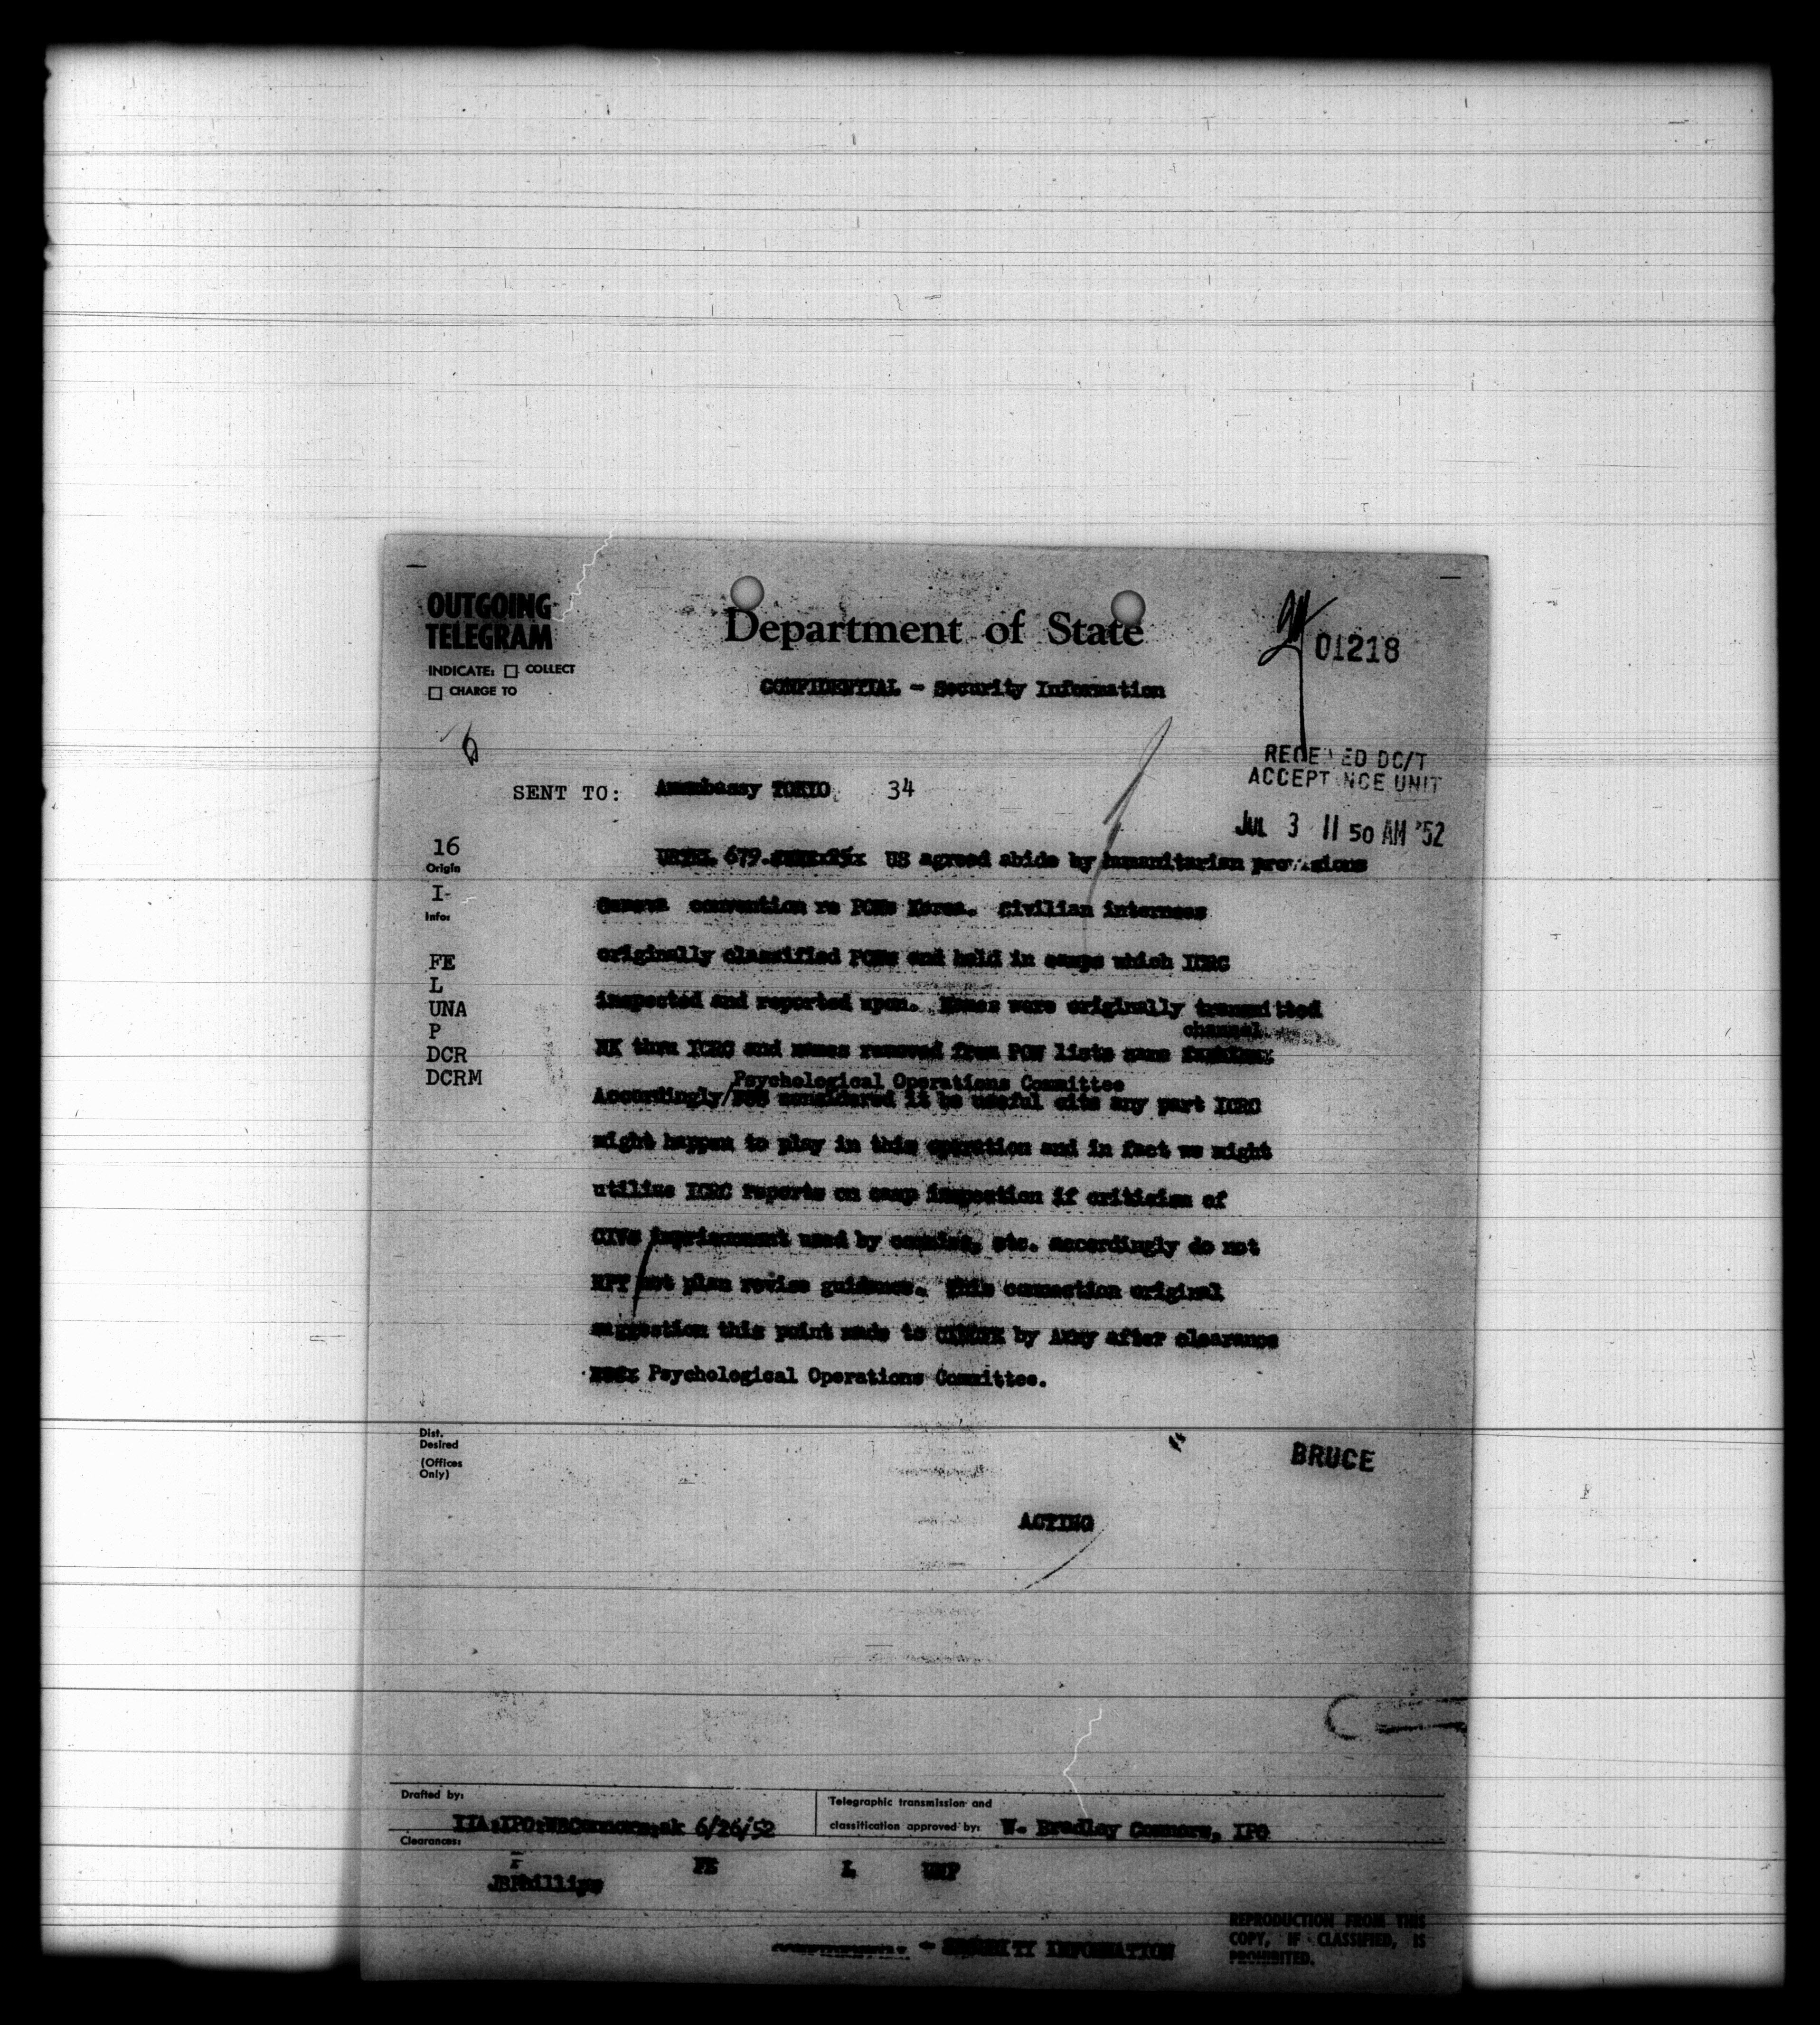 OUTGOING
TELEGRAM
INDICATE: ☐ COLLECT
☐ CHARGE TO
Department of State
CONFIDENTIAL - Security Information
01218
RECE ED DC/T
ACCEPT NCE UNIT
JUL 3 11 50 AM '52
SENT TO: Amembassy TOKYO 34
16
Origin
I-
Info:
FE
L
UNA
P
DCR
DCRM
URTEL 679. US agreed abide by humanitarian provisions
Geneva convention re POWs Korea. Civilian internees
originally classified POWs and held in camps which ICRC
inspected and reported upon. Names were originally transmitted
channel.
NK thru ICRC and names removed from POW lists same
Psychological Operations Committee
Accordingly/ considered it be useful cite any part ICRC
might happen to play in this operation and in fact we might
utilize ICRC reports on camp inspection if criticism of
CIVS imprisonment used by commies, etc. accordingly do not
RPT not plan revise guidance. This connection original
suggestion this point made to by Army after clearance
Psychological Operations Committee.
Dist.
Desired
(Offices
Only)
BRUCE
ACTING
Drafted by:
IIA:IPO:WBConnors:ak 6/26/52
Telegraphic transmission and
classification approved by: W. Bradley Connors, IPO
Clearances:
JBPhillips
FE
L
UNP
- SECURITY INFORMATION
REPRODUCTION FROM THIS
COPY, IF CLASSIFIED, IS
PROHIBITED.